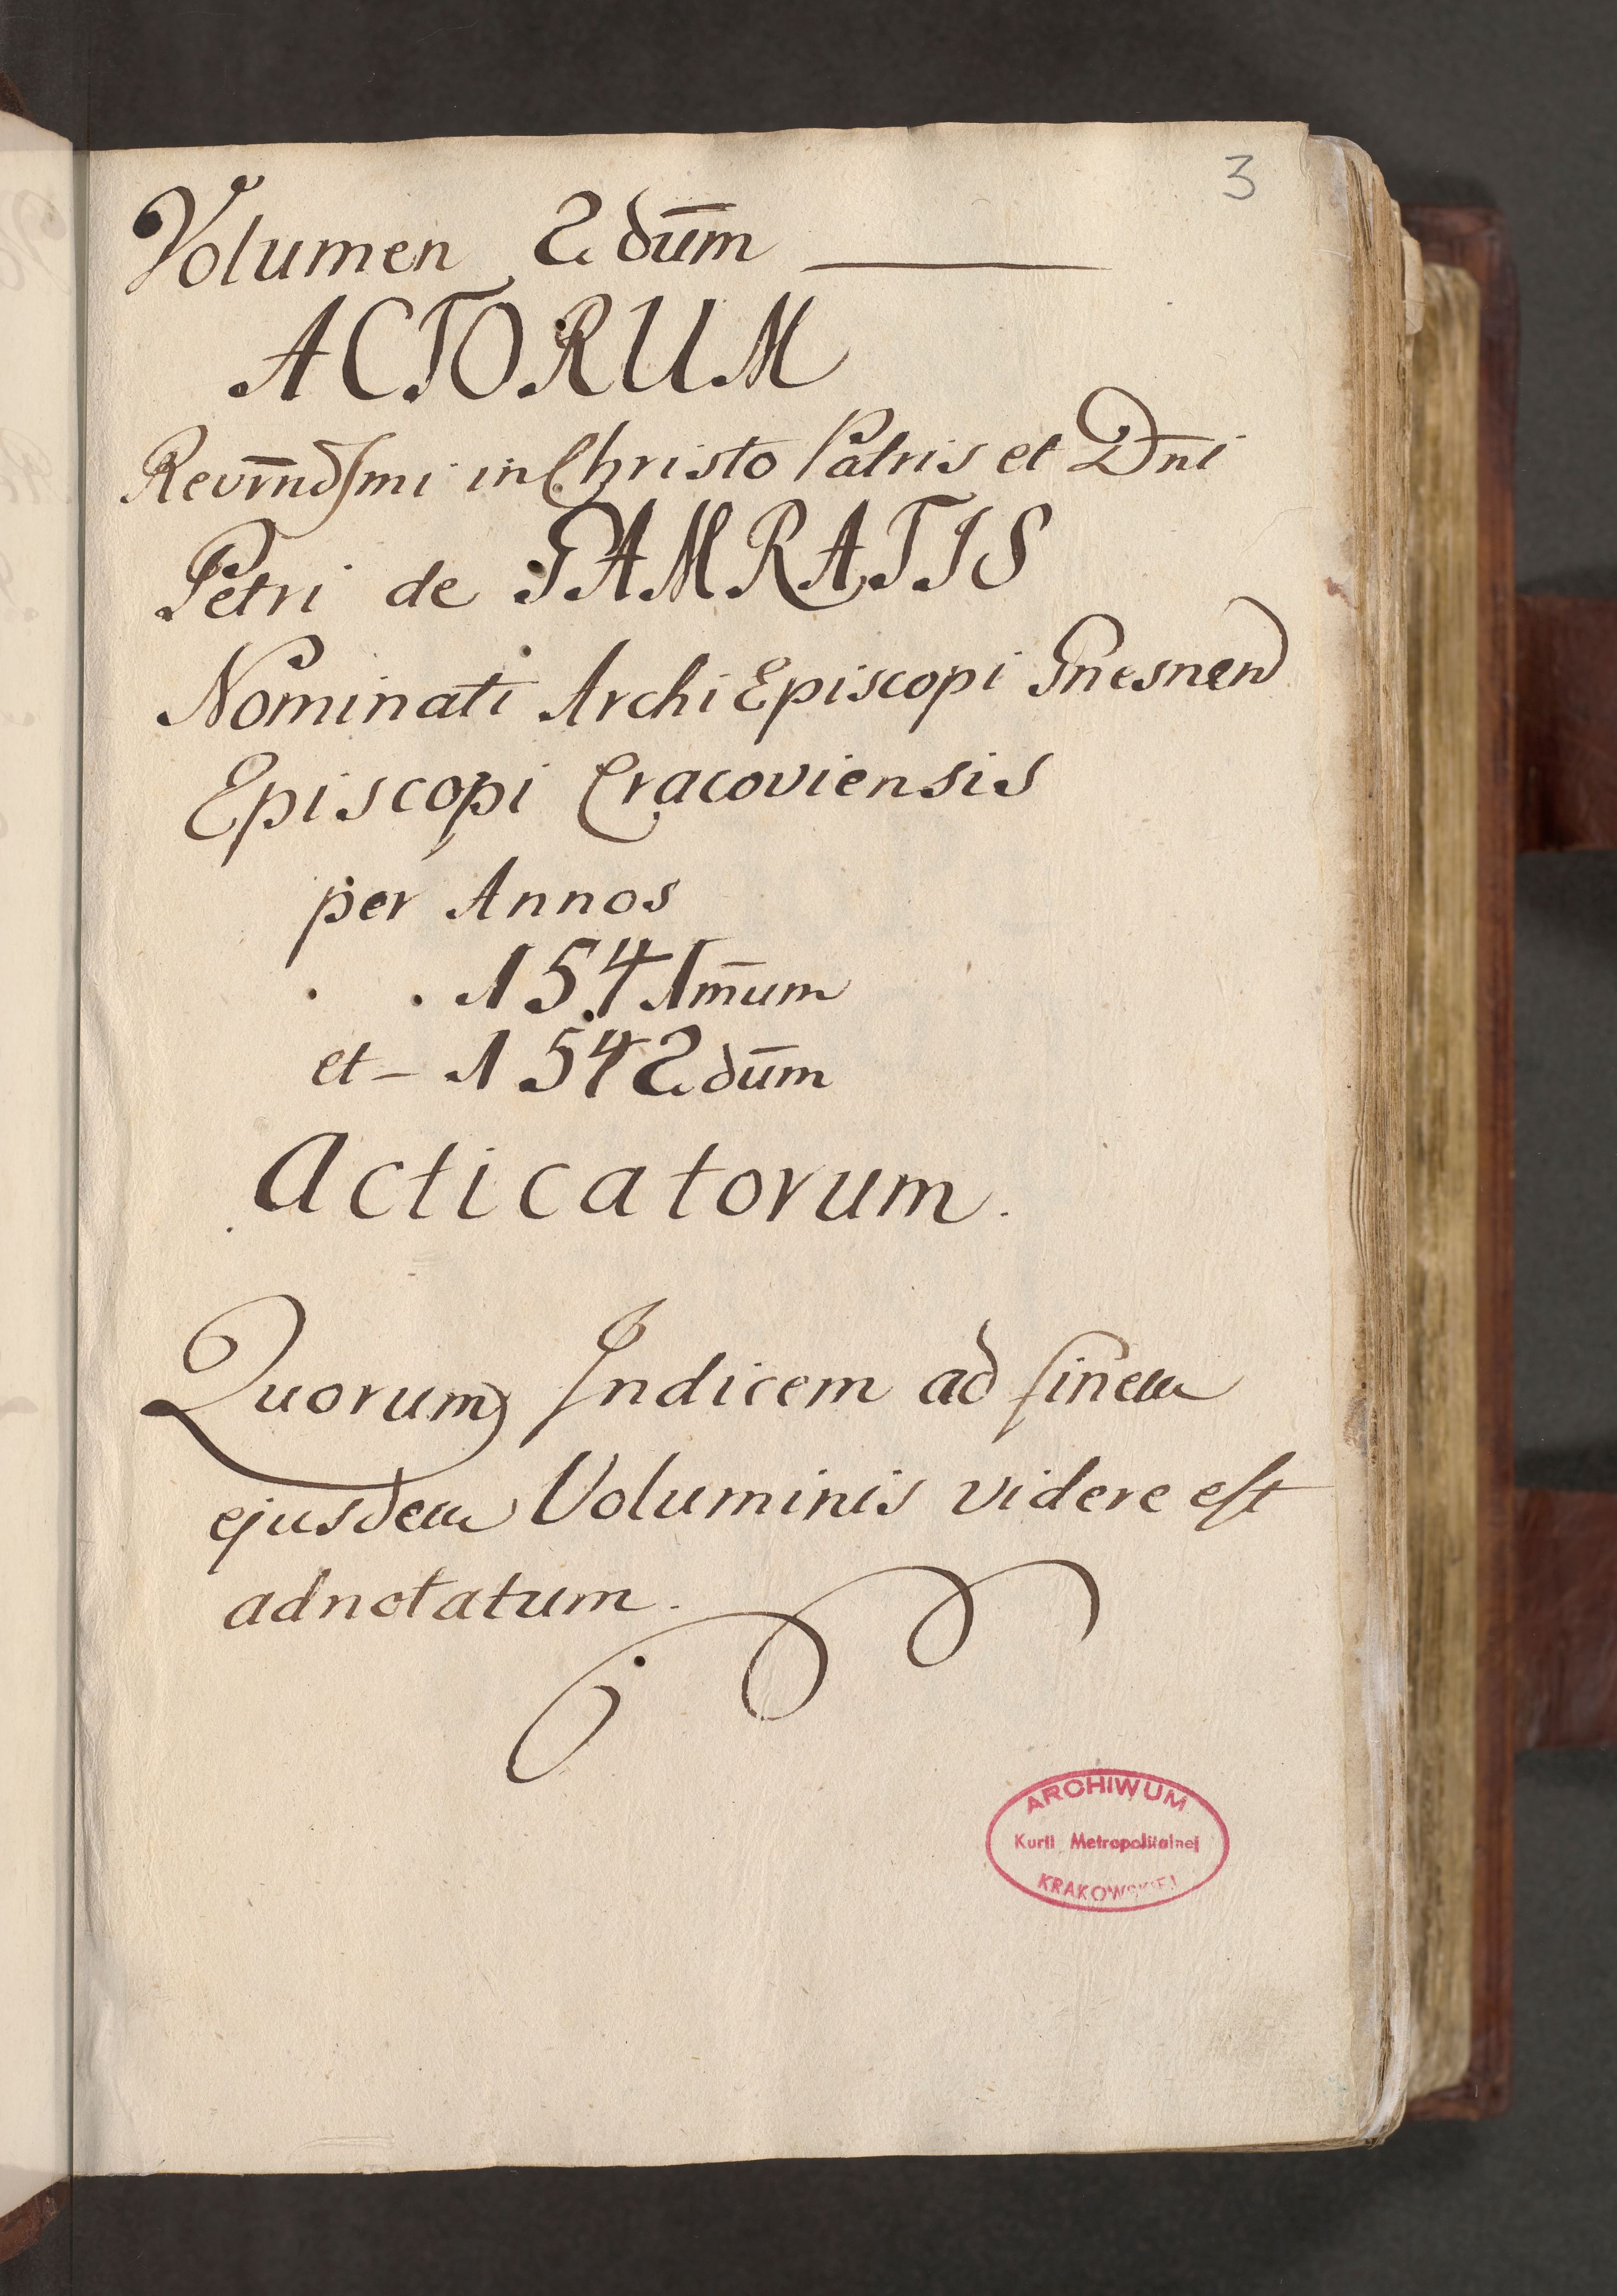 3
Volumen 2dūm
ACTORUM
Revrn̄dſmi in Christo Patris et Dn̄i
Petri de GAMRATIS
Nominati ArchiEpiscopi Gnesnen
Episcopi Cracoviensis
per Annos
1541m̄um
et - 1542dūm
Acticatorum.
Quorum Indicem ad finem
ejusdem Voluminis videre eſt
adnotatum.
ARCHIWUM
Kurii Metropolitalnej
KRAKOWSKIEJ